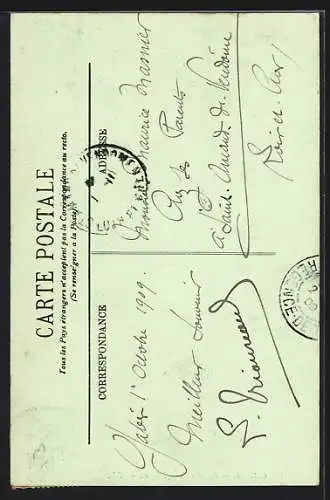 CARTE POSTALE
Tous les Pays étrangers n'acceptent pas la Correspondance au recto.
(Se renseigner à la Poste)
CORRESPONDANCE
1er Octobre 1909.
Meilleur Souvenir
ADRESSE
Monsieur Maurice
Chez ses Parents
à Saint Amand de Vendôme
Loir et Cher